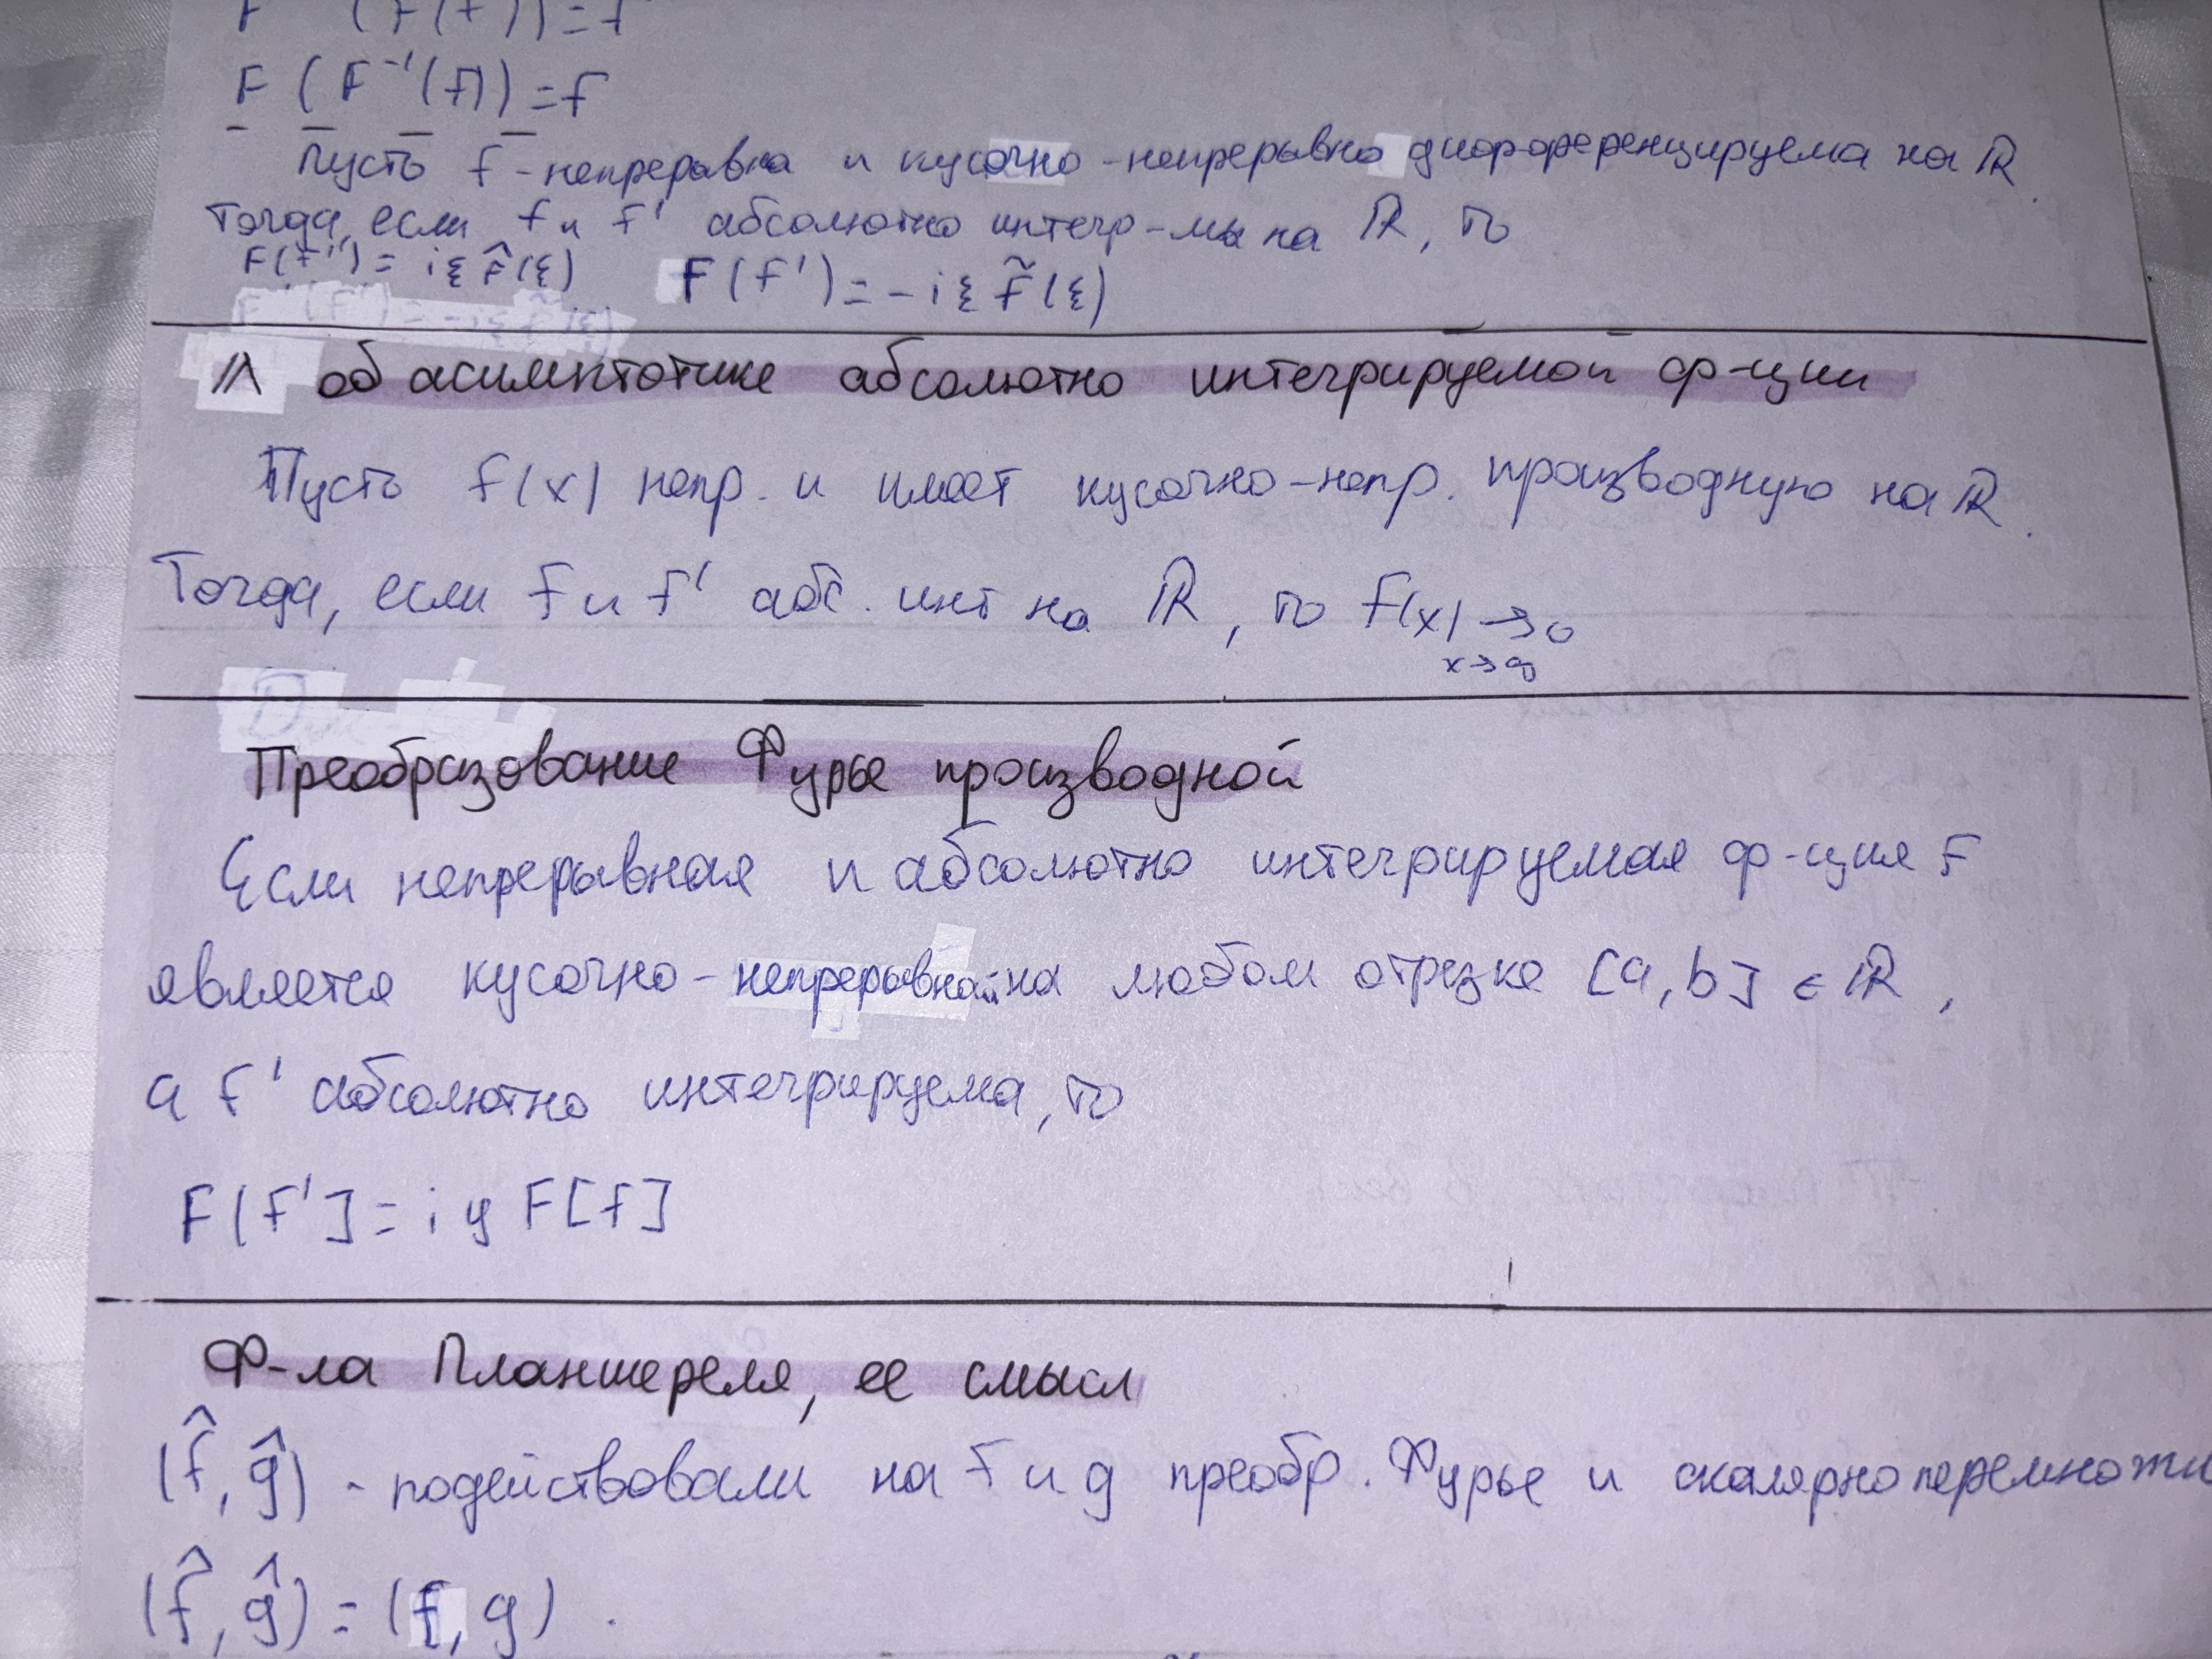 F (F⁻¹(f)) = f
Пусть f - непрерывна и кусочно - непрерывно дифференцируема на ℝ.
Тогда, если f и f' абсолютно интегр-мы на ℝ, то
F(f') = iξ f̂(ξ) F(f') = - iξ f̃(ξ)
Л об асимптотике абсолютно интегрируемой ф-ции
Пусть f(x) непр. и имеет кусочно-непр. производную на ℝ.
Тогда, если f и f' абс. инт на ℝ, то f(x) → 0
x→∞
Преобразование Фурье производной
Если непрерывная и абсолютно интегрируемая ф-ция f
является кусочно - непрерывной на любом отрезке [a, b] ∈ ℝ,
а f' абсолютно интегрируема, то
F[f'] = i y F[f]
Ф-ла Планшереля, ее смысл
(f̂, ĝ) - подействовали на f и g преобр. Фурье и скалярно перемножи
(f̂, ĝ) = (f, g).